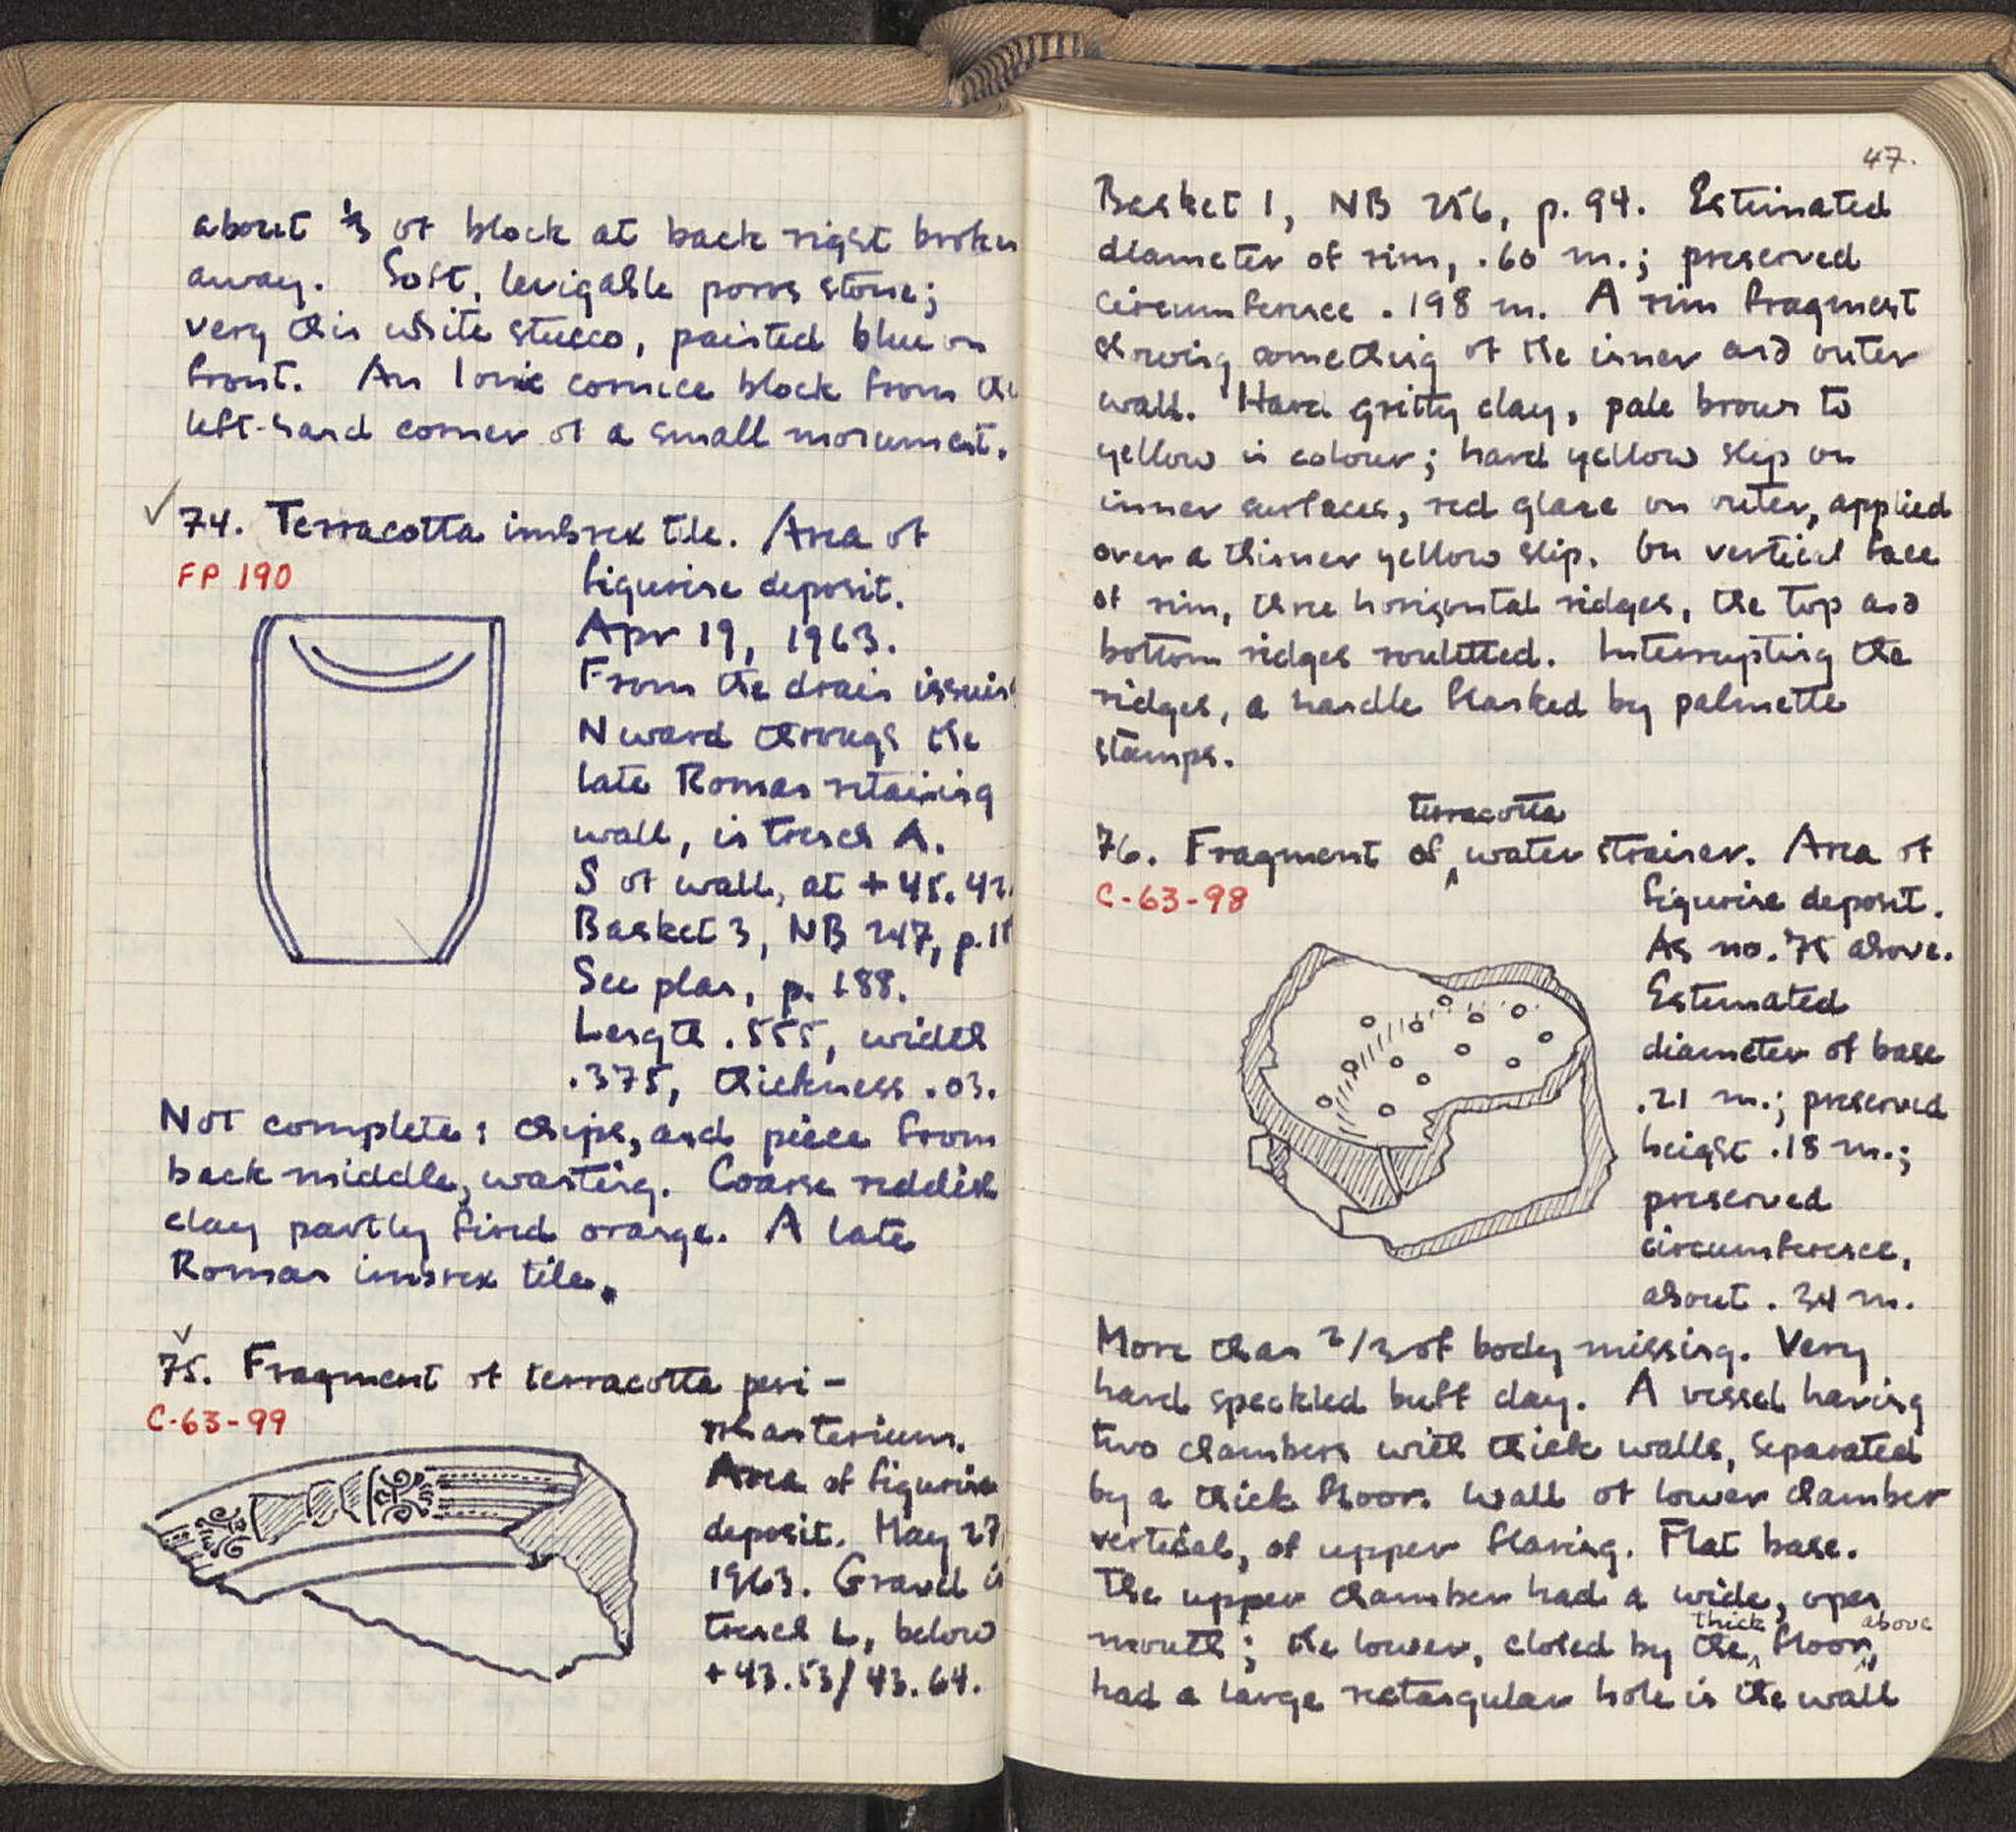 about ⅓ of block at back right broken
away. Soft, levigable poros stone;
very thin white stucco, painted blue on
front. An Ionic cornice block from the
left-hand corner of a small monument.
✓74. Terracotta imbrex tile. Area of
FP 190
figurine deposit.
Apr 19, 1963.
From the drain issuing
Nward through the
late Roman retaining
wall, in trench A.
S of wall, at +45.42.
Basket 3, NB 247, p.
See plan, p. 188.
Length .555, width
.375, thickness .03.
Not complete: chips, and piece from
back middle, wanting. Coarse reddish
clay partly fired orange. A late
Roman imbrex tile.
✓
75. Fragment of terracotta peri-
C-63-99
rrhanterium.
Area of figurine
deposit. May 27
1963. Gravel in
trench L, below
+43.53/43.64.
47.
Basket 1, NB 256, p. 94. Estimated
diameter of rim, .60 m.; preserved
circumference .198 m. A rim fragment
showing something of the inner and outer
wall. Hard gritty clay, pale brown to
yellow in colour; hard yellow slip on
inner surfaces, red glaze on outer, applied
over a thinner yellow slip. On vertical face
of rim, three horizontal ridges, the top and
bottom ridges rouletted. Interrupting the
ridges, a handle flanked by palmette
stamps.
terracotta
76. Fragment of ‸ water strainer. Area of
C-63-98
figurine deposit.
As no. 75 above.
Estimated
diameter of base
.21 m.; preserved
height .18 m.;
preserved
circumference,
about .34 m.
More than 2/3 of body missing. Very
hard speckled buff clay. A vessel having
two chambers with thick walls, separated
by a thick floor. Wall of lower chamber
vertical, of upper flaring. Flat base.
The upper chamber had a wide, open
thick above
mouth; the lower, closed by the ‸ floor ‸,
had a large rectangular hole in the wall